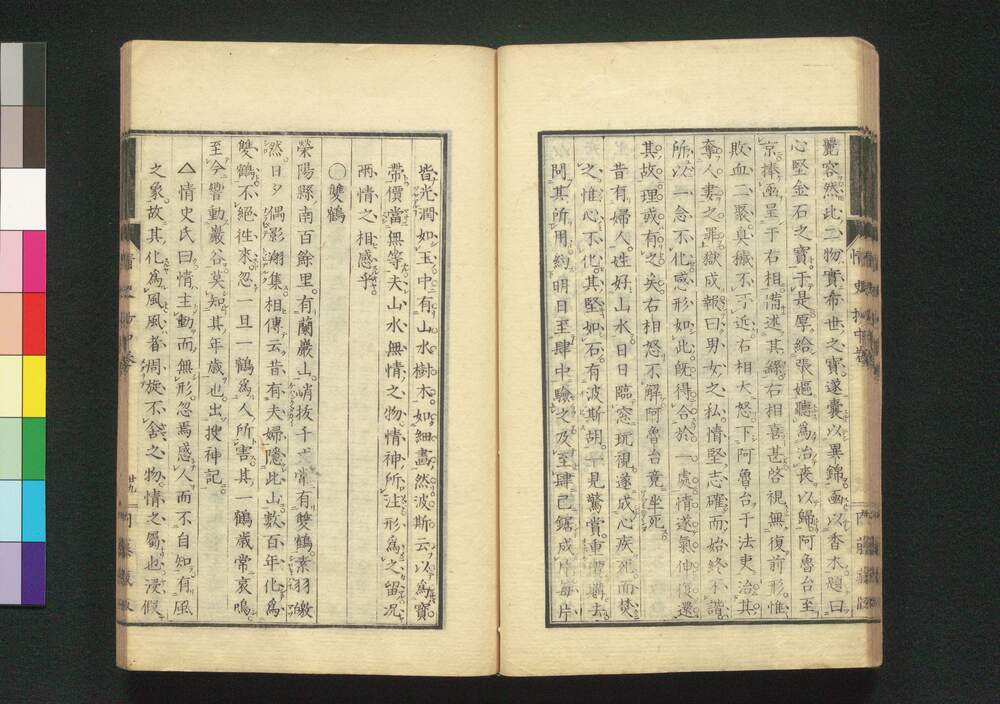 麗容然此二物實希世之寶遂囊以異錦函以香木題曰
心堅金石之寶于是厚給張嫗聽爲治喪以歸阿魯台至
京捧函呈于右相備述其繇右相喜甚啓視無復前形惟
敗血二聚臭穢不可近右相大怒下阿魯台于法吏治其
奪人妻之罪獄成報曰男女之私情堅志確而始終不諧
所以一念不化感形如此旣得合於一處情遂氣伸復還
其故理或有之矣右相怒不解阿魯台竟坐死
昔有婦人性好山水日日臨窓玩視遂成心疾死而焚
之惟心不化其堅如石有波斯胡一見驚賞重價購去
問其所用約明日至肆中驗之及至肆已鋸成片每片
皆光潤如玉中有山水樹木如細畫然波斯云以爲寶
帶價當無等夫山水無情之物情神所注形爲之留況
兩情之相感乎
○雙鶴
滎陽縣南百餘里有蘭巖山峭拔千丈常有雙鶴素羽皦
然日夕偶影翔集相傳云昔有夫婦隱此山數百年化爲
雙鶴不絕往來忽一旦一鶴爲人所害其一鶴歲常哀鳴
至今響動巖谷莫知其年歲也出搜神記
△情史氏曰情主動而無形忽焉感人而不自知有風
之象故其化爲風風者周旋不舍之物情之屬也浸假
情史抄中卷
廿九